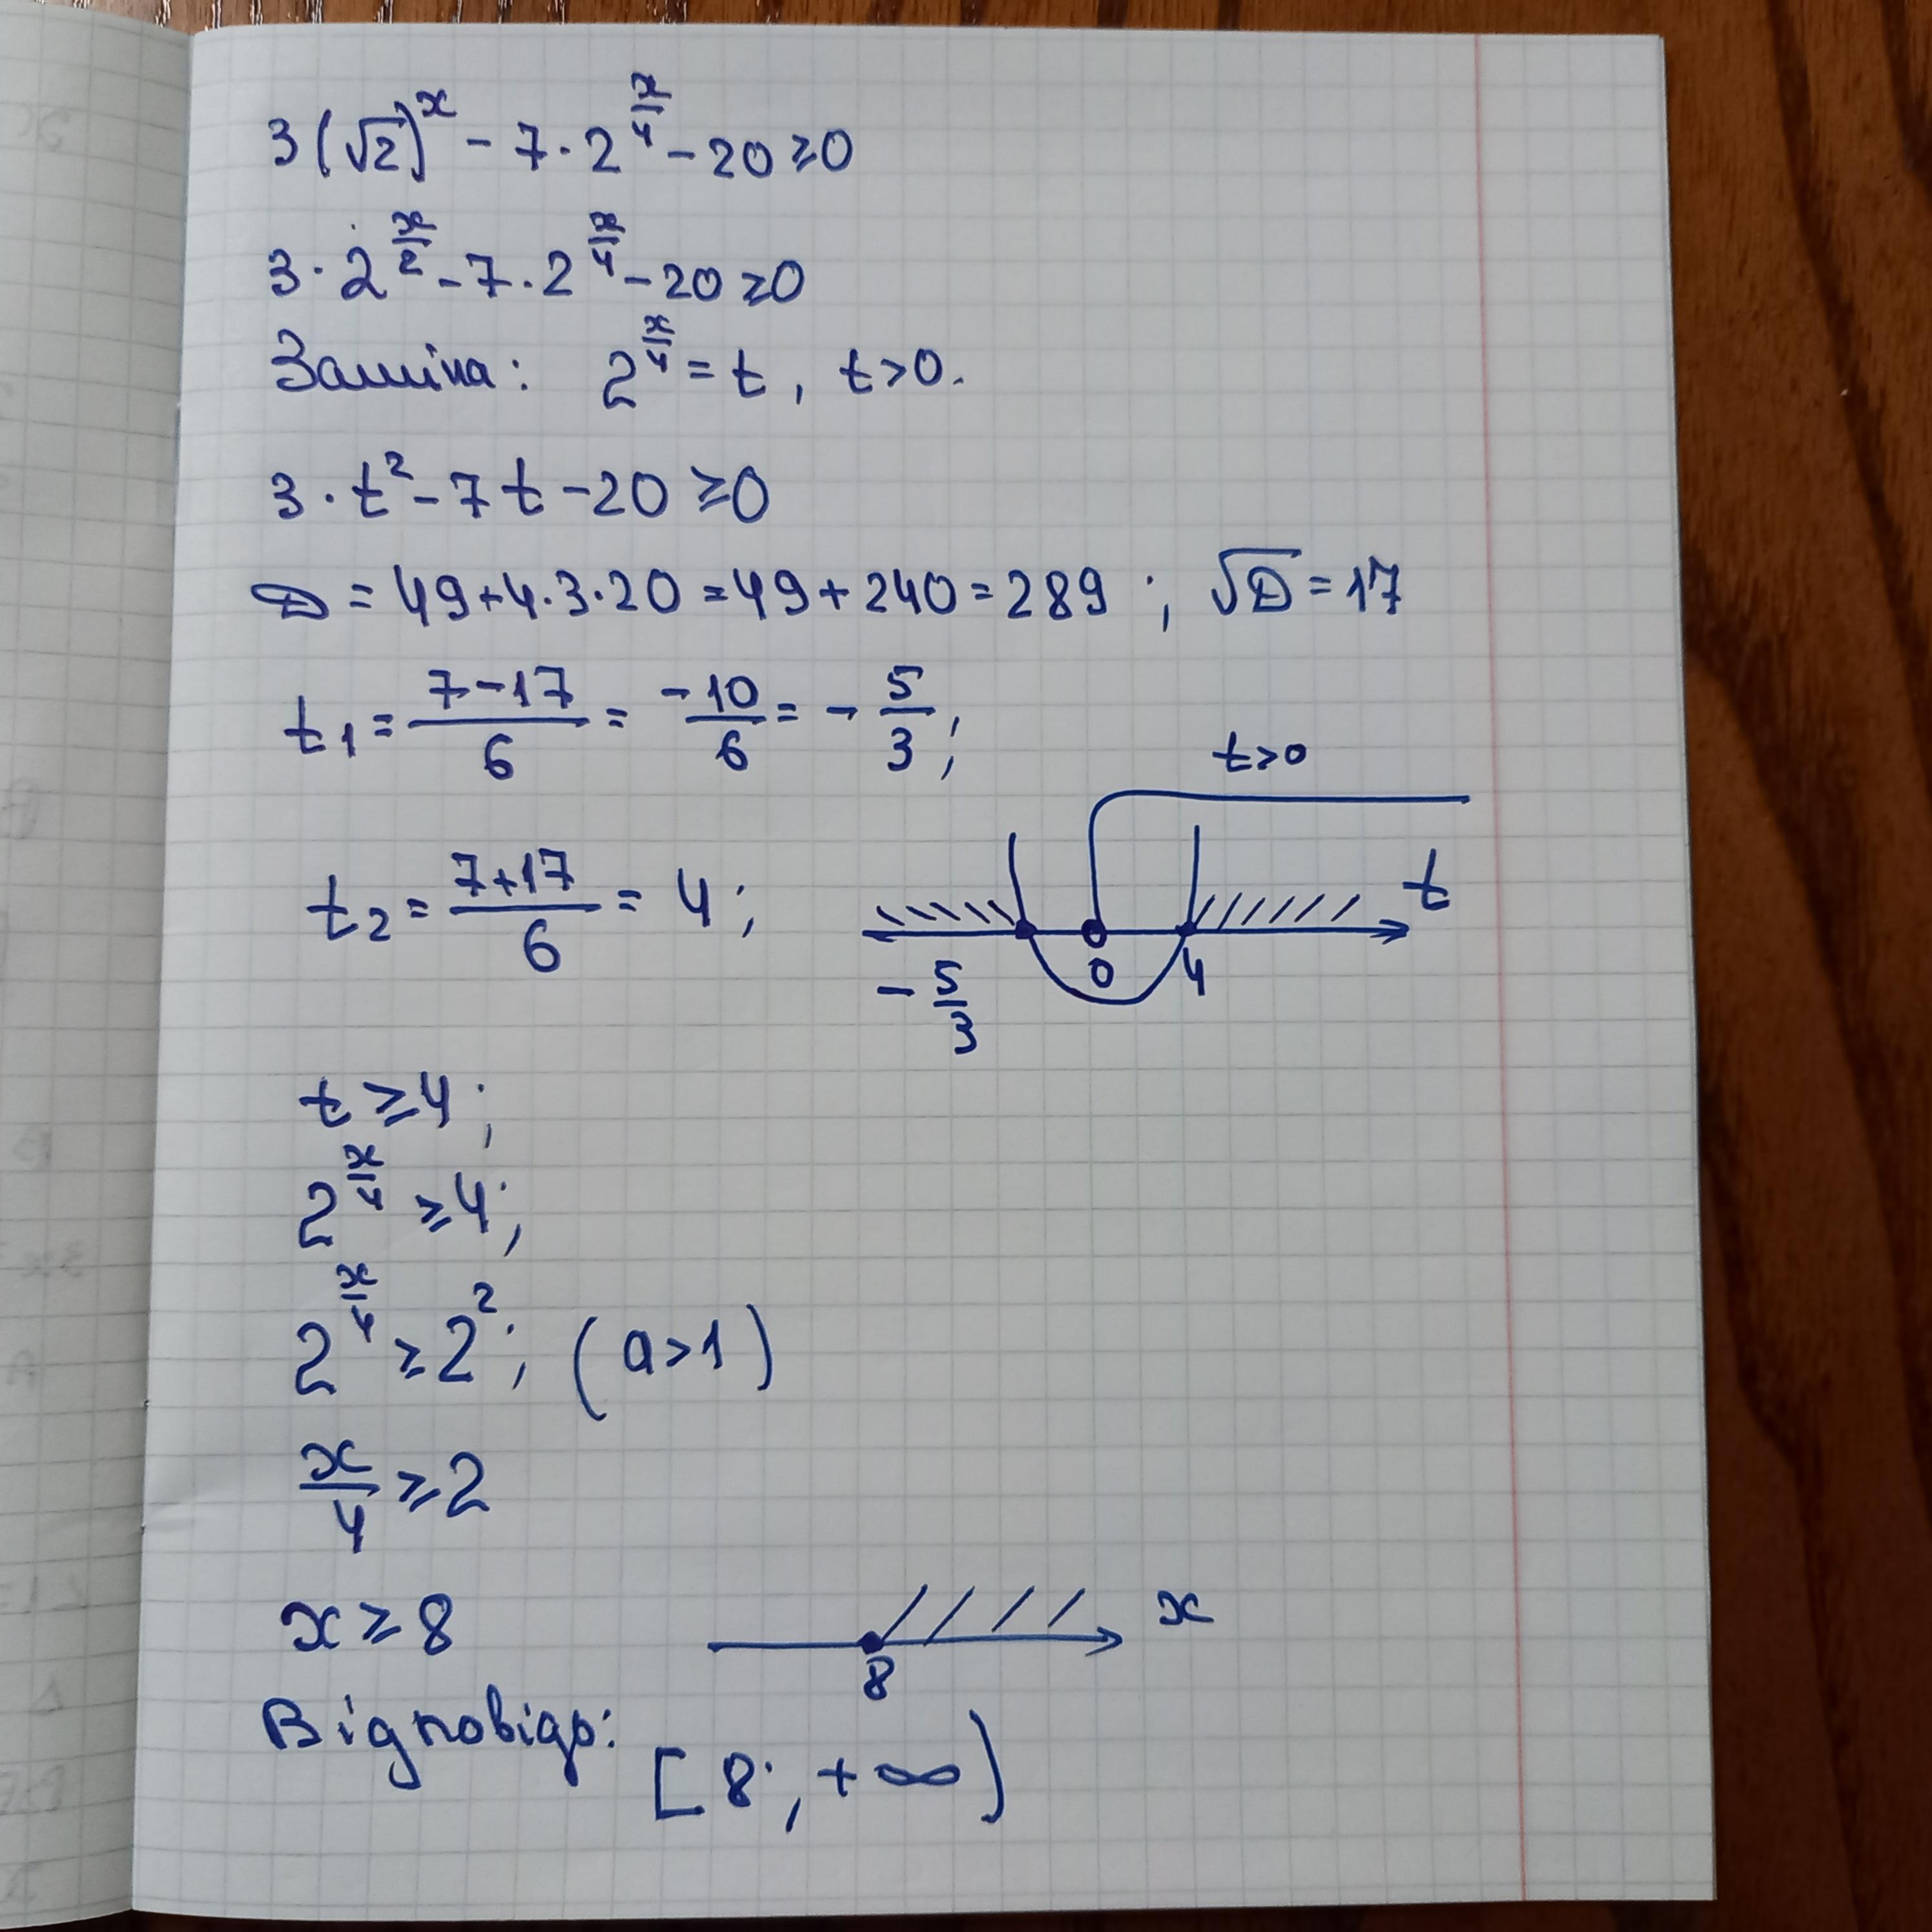 3(√2)^x - 7·2^(x/4) - 20 ≥ 0
3·2^(x/2) - 7·2^(x/4) - 20 ≥ 0
Заміна: 2^(x/4) = t, t>0.
3·t² - 7t - 20 ≥ 0
D = 49+4·3·20 = 49+240 = 289 ; √D = 17
t₁ = (7-17)/6 = -10/6 = -5/3;
t>0
t₂ = (7+17)/6 = 4;
t
-5/3 0 4
t ≥ 4;
2^(x/4) ≥ 4;
2^(x/4) ≥ 2²; (a>1)
x/4 ≥ 2
x ≥ 8
x
8
Відповідь: [8; +∞)